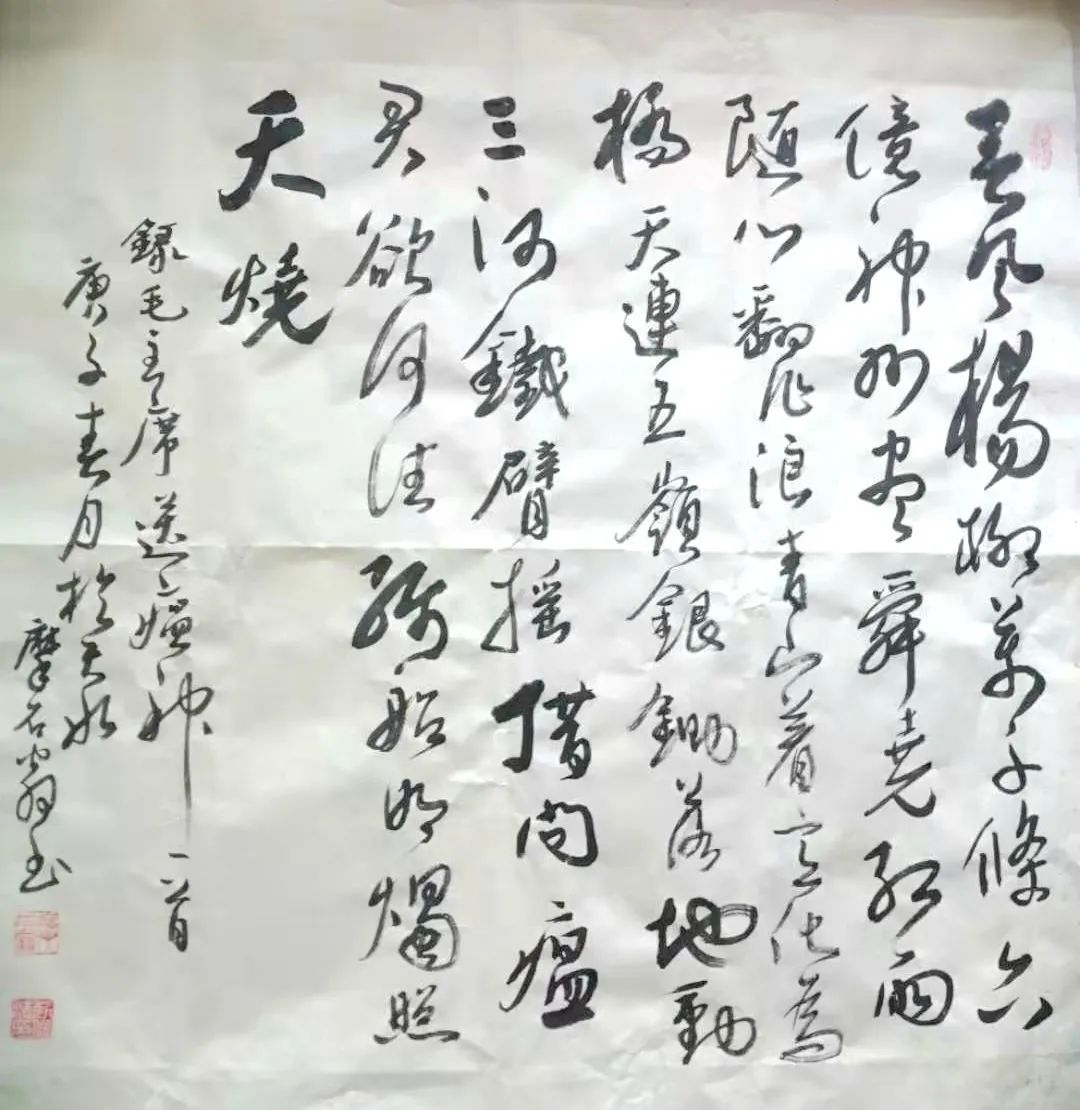 春风楊柳萬千條六
億神州尽舜堯红雨
随心翻作浪青山着意化為
橋天連五嶺銀鋤落地動
三河鐵臂摇借问瘟
君欲何往纸船明燭照
天燒
録毛主席送瘟神一首
庚子春月於天水
摩石翁书